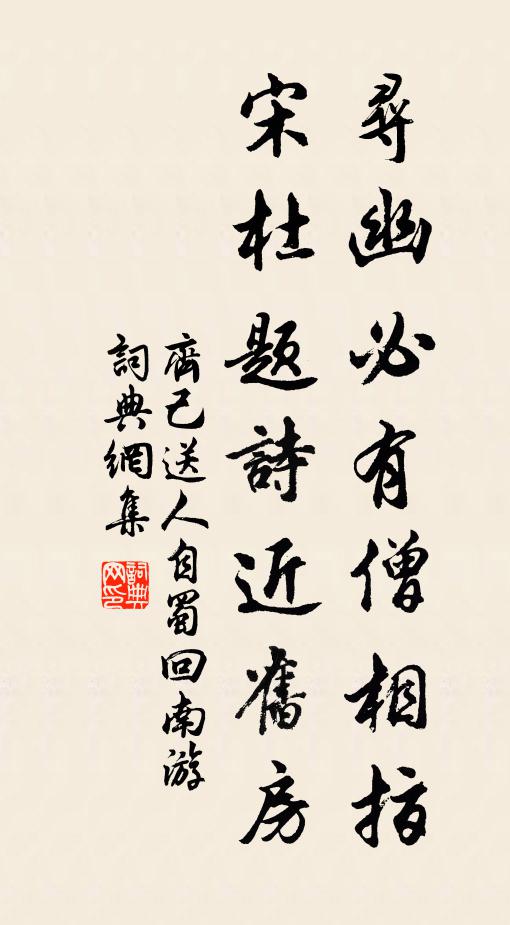 尋幽必有僧相指
宋杜題詩近舊房
齊己送人自蜀回南游
詞典網集
詞典网印